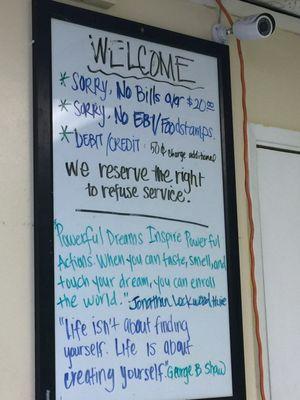 WELCOME
* SORRY, No Bills over $20.00
* SORRY, No EBT/Foodstamps.
* DEBIT/CREDIT: 50¢ charge additional
We reserve the right
to refuse service.
"Powerful Dreams Inspire Powerful
Actions. When you can taste, smell, and
touch your dream, you can enroll
the world." Jonathan Lockwood Huie
"Life isn't about finding
yourself. Life is about
creating yourself." George B Shaw